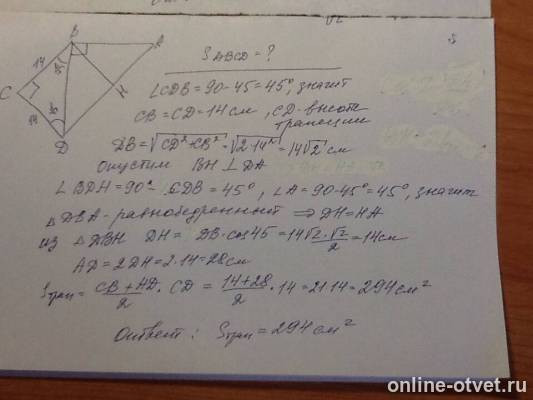 S ABCD = ?
∠CDB = 90 - 45 = 45°, значит
CB = CD = 14 см, CD - высота
трапеции
DB = √CD² + CB² = √2·14² = 14√2 см
Опустим BH ⊥ DA
∠BDH = 90° - CDB = 45°, ∠A = 90 - 45° = 45°, значит
△DBA - равнобедренный ⇒ DH = HA
из △DBH DH = DB·cos45 = 14√2·√2/2 = 14 см
AD = 2DH = 2·14 = 28 см
Sтрап = CB + AD/2 · CD = 14+28/2 · 14 = 21·14 = 294 см²
Ответ: Sтрап = 294 см²
B
A
14
45
C
H
14
45
D
online-otvet.ru